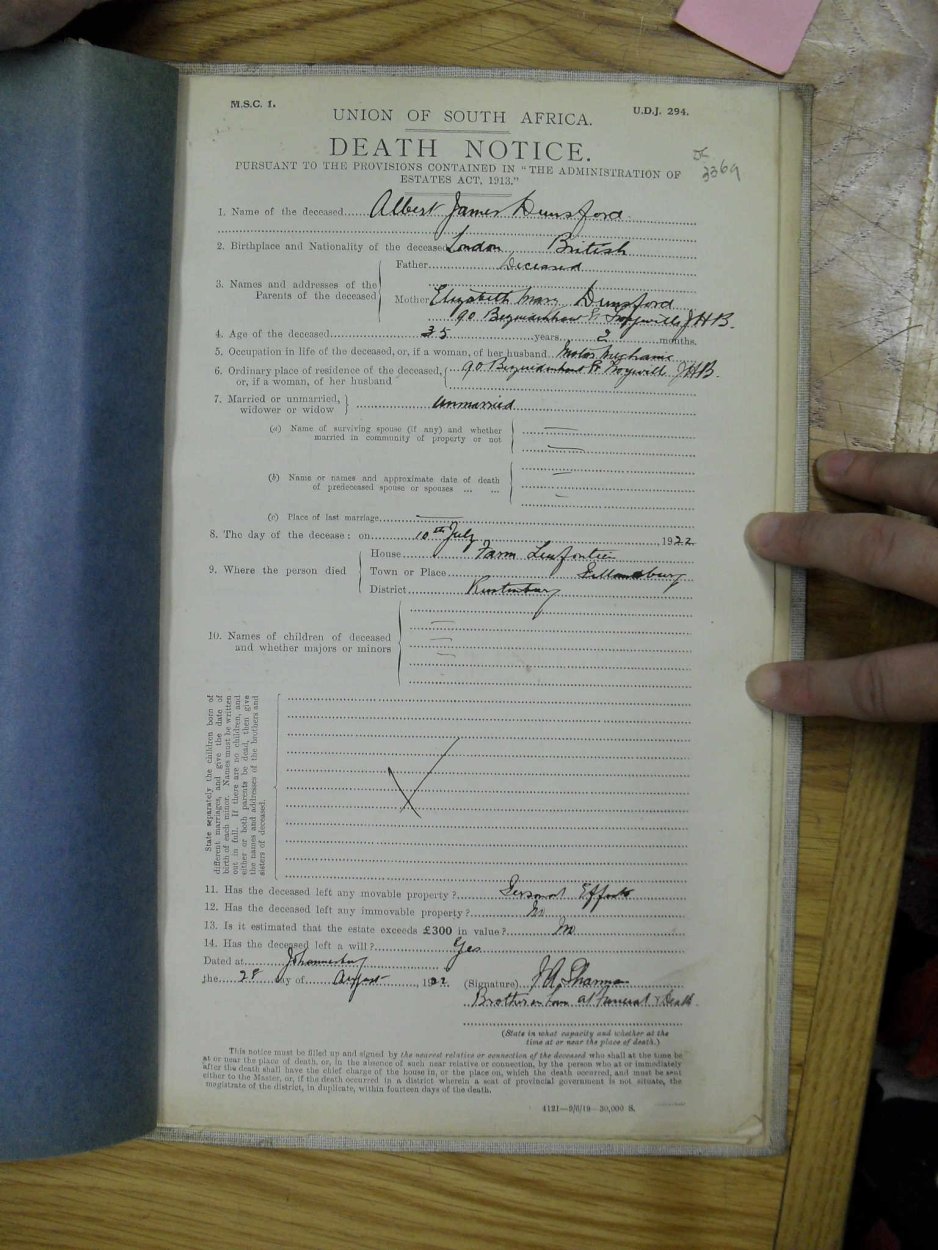 M.S.C. 1.
U.D.J. 294.
UNION OF SOUTH AFRICA.
DEATH NOTICE.
3369
PURSUANT TO THE PROVISIONS CONTAINED IN "THE ADMINISTRATION OF
ESTATES ACT, 1913."
1. Name of the deceased Albert James Dunsford
2. Birthplace and Nationality of the deceased London British
3. Names and addresses of the Parents of the deceased
Father Deceased
Mother Elizabeth Mary Dunsford
90 St JHB.
4. Age of the deceased 35 years 2 months.
5. Occupation in life of the deceased, or, if a woman, of her husband Motor Mechanic
6. Ordinary place of residence of the deceased, or, if a woman, of her husband
90 St JHB.
7. Married or unmarried, widower or widow Unmarried
(a) Name of surviving spouse (if any) and whether
married in community of property or not
(b) Name or names and approximate date of death
of predeceased spouse or spouses ... ...
(c) Place of last marriage
8. The day of the decease: on 10th July 1922
9. Where the person died
House Farm
Town or Place
District Rustenburg
10. Names of children of deceased
and whether majors or minors
State separately the children born of
different marriages, and give the date of
birth of each minor. Names must be written
out in full. If there are no children, and
either or both parents be dead, then give
the names and addresses of the brothers and
sisters of deceased.
11. Has the deceased left any movable property? Personal Effects
12. Has the deceased left any immovable property? No
13. Is it estimated that the estate exceeds £300 in value? No
14. Has the deceased left a will? Yes
Dated at Johannesburg
the 28 day of August, 1922.
(Signature)
Brother in Law at Funeral & Death
(State in what capacity and whether at the
time at or near the place of death.)
This notice must be filled up and signed by the nearest relative or connection of the deceased who shall at the time be
at or near the place of death, or, in the absence of such near relative or connection, by the person who at or immediately
after the death shall have the chief charge of the house in, or the place on, which the death occurred, and must be sent
either to the Master, or, if the death occurred in a district wherein a seat of provincial government is not situate, the
magistrate of the district, in duplicate, within fourteen days of the death.
4121—9/6/19—30,000 S.